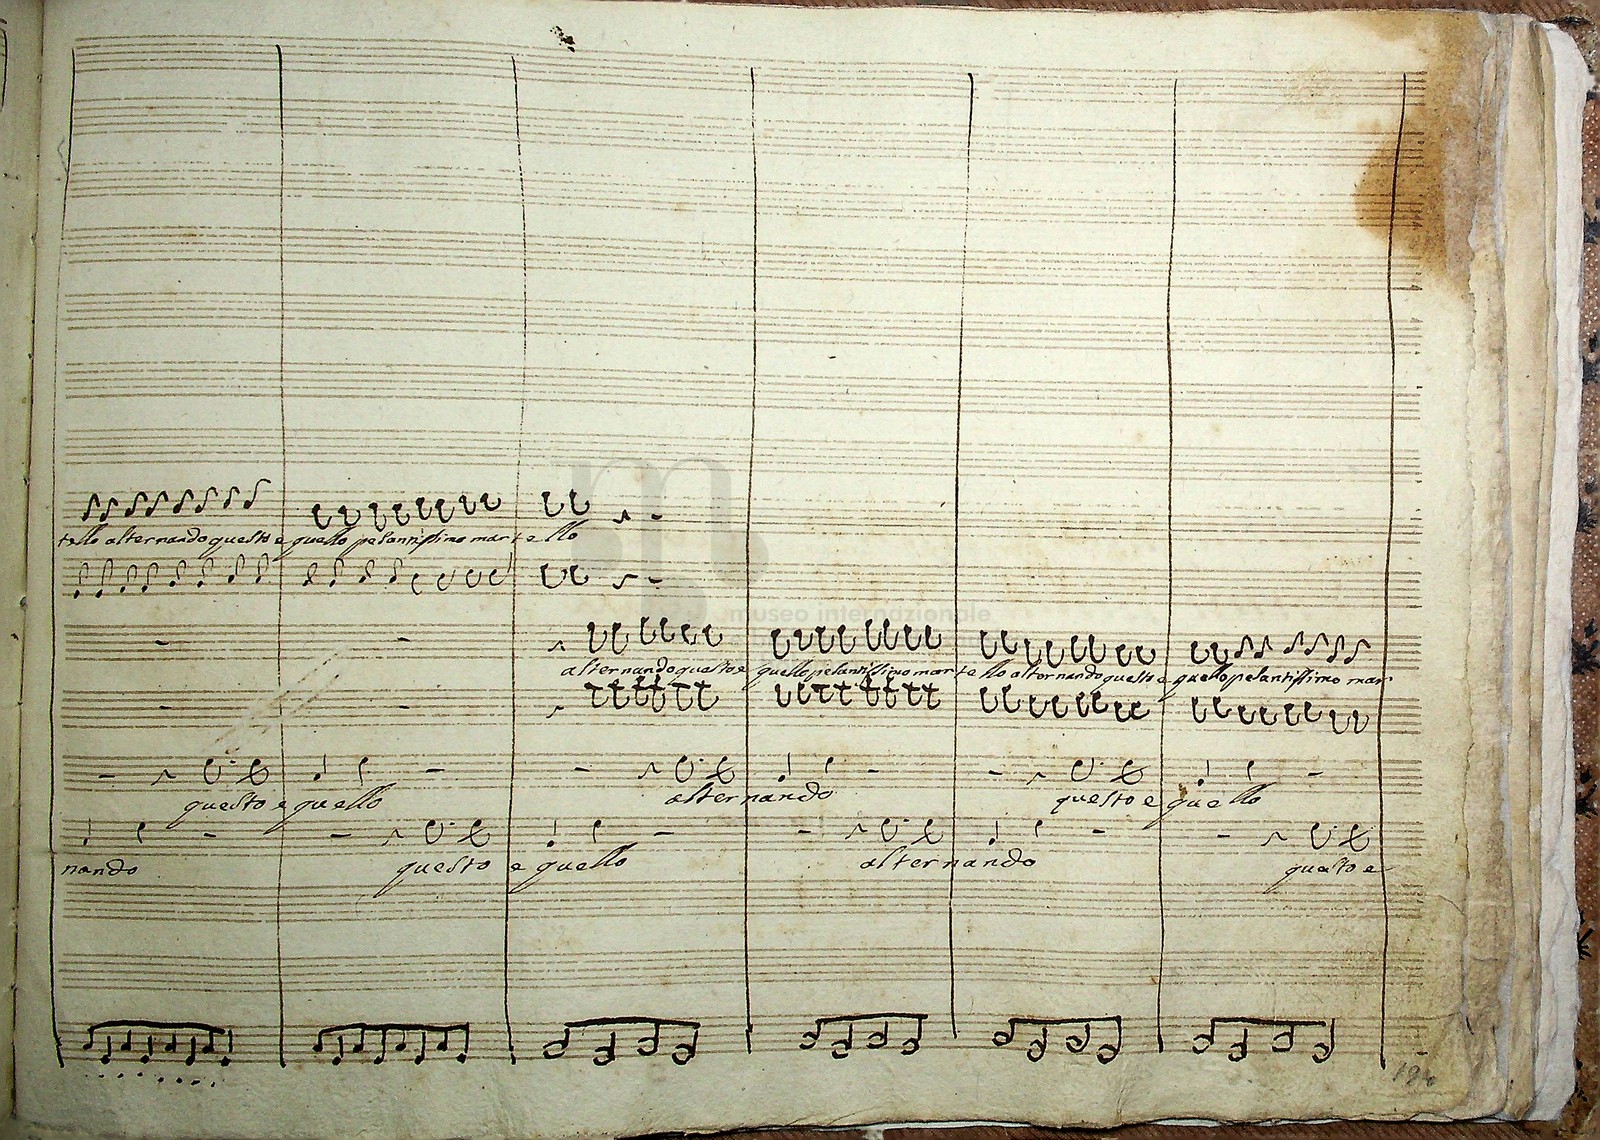 tello alternando questo e quello pesantissimo martello
museo internazionale
alternando questo e quello pesantissimo martello alternando questo e quello pesantissimo mar
questo e quello alternando questo e quello
nando questo e quello alternando questo e